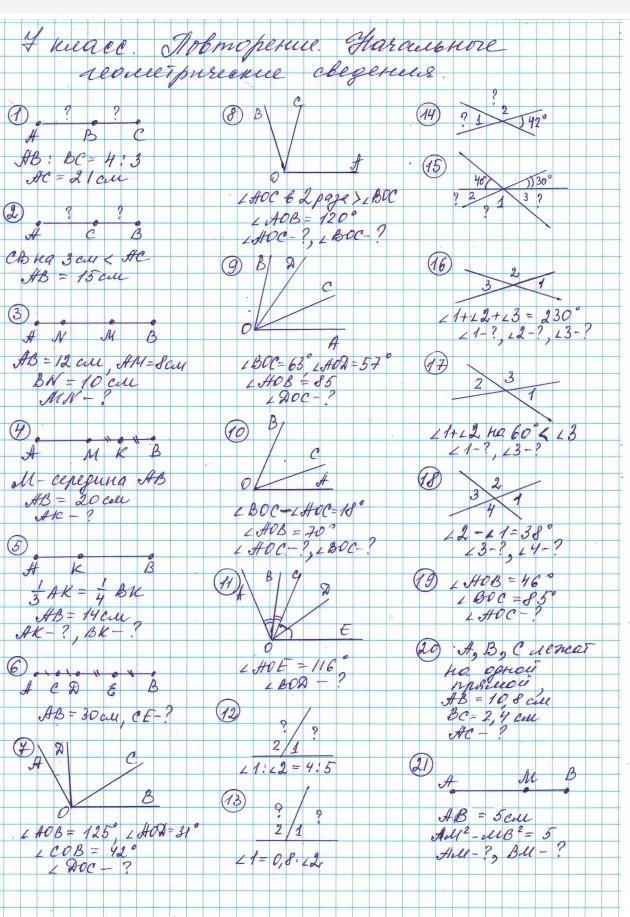 7 класс. Повторение. Начальные
геометрические сведения.
1
? ?
A B C
AB : BC = 4 : 3
AC = 21 см
2
? ?
A C B
CB на 3 см < AC
AB = 15 см
3
A N M B
AB = 12 см, AM = 8 см
BN = 10 см
MN - ?
4
A M K B
M - середина AB
AB = 20 см
AK - ?
5
A K B
1/3 AK = 1/4 BK
AB = 14 см
AK - ?, BK - ?
6
A C D E B
AB = 30 см, CE - ?
7
A D C
O B
∠AOB = 125°, ∠AOD = 31°
∠COB = 42°
∠DOC - ?
8
B C
O A
∠AOC в 2 раза > ∠BOC
∠AOB = 120°
∠AOC - ?, ∠BOC - ?
9
B D
C
O A
∠BOC = 63°, ∠AOD = 57°
∠AOB = 85
∠DOC - ?
10
B
C
O A
∠BOC - ∠AOC = 18°
∠AOB = 70°
∠AOC - ?, ∠BOC - ?
11
A B C D
O E
∠AOE = 116°
∠BOD - ?
12
? ?
2 1
∠1 : ∠2 = 4 : 5
13
? ?
2 1
∠1 = 0,8 · ∠2
14
?
? 1 2 42°
15
40° 30°
? 2 1 3 ?
?
16
3 2 1
∠1 + ∠2 + ∠3 = 230°
∠1 - ?, ∠2 - ?, ∠3 - ?
17
2 3
1
∠1 + ∠2 на 60° < ∠3
∠1 - ?, ∠3 - ?
18
2
3 1
4
∠2 - ∠1 = 38°
∠3 - ?, ∠4 - ?
19
∠AOB = 46°
∠BOC = 85°
∠AOC - ?
20
A, B, C лежат
на одной
прямой,
AB = 10,8 см
BC = 2,4 см
AC - ?
21
A M B
AB = 5 см
AM² - MB² = 5
AM - ?, BM - ?